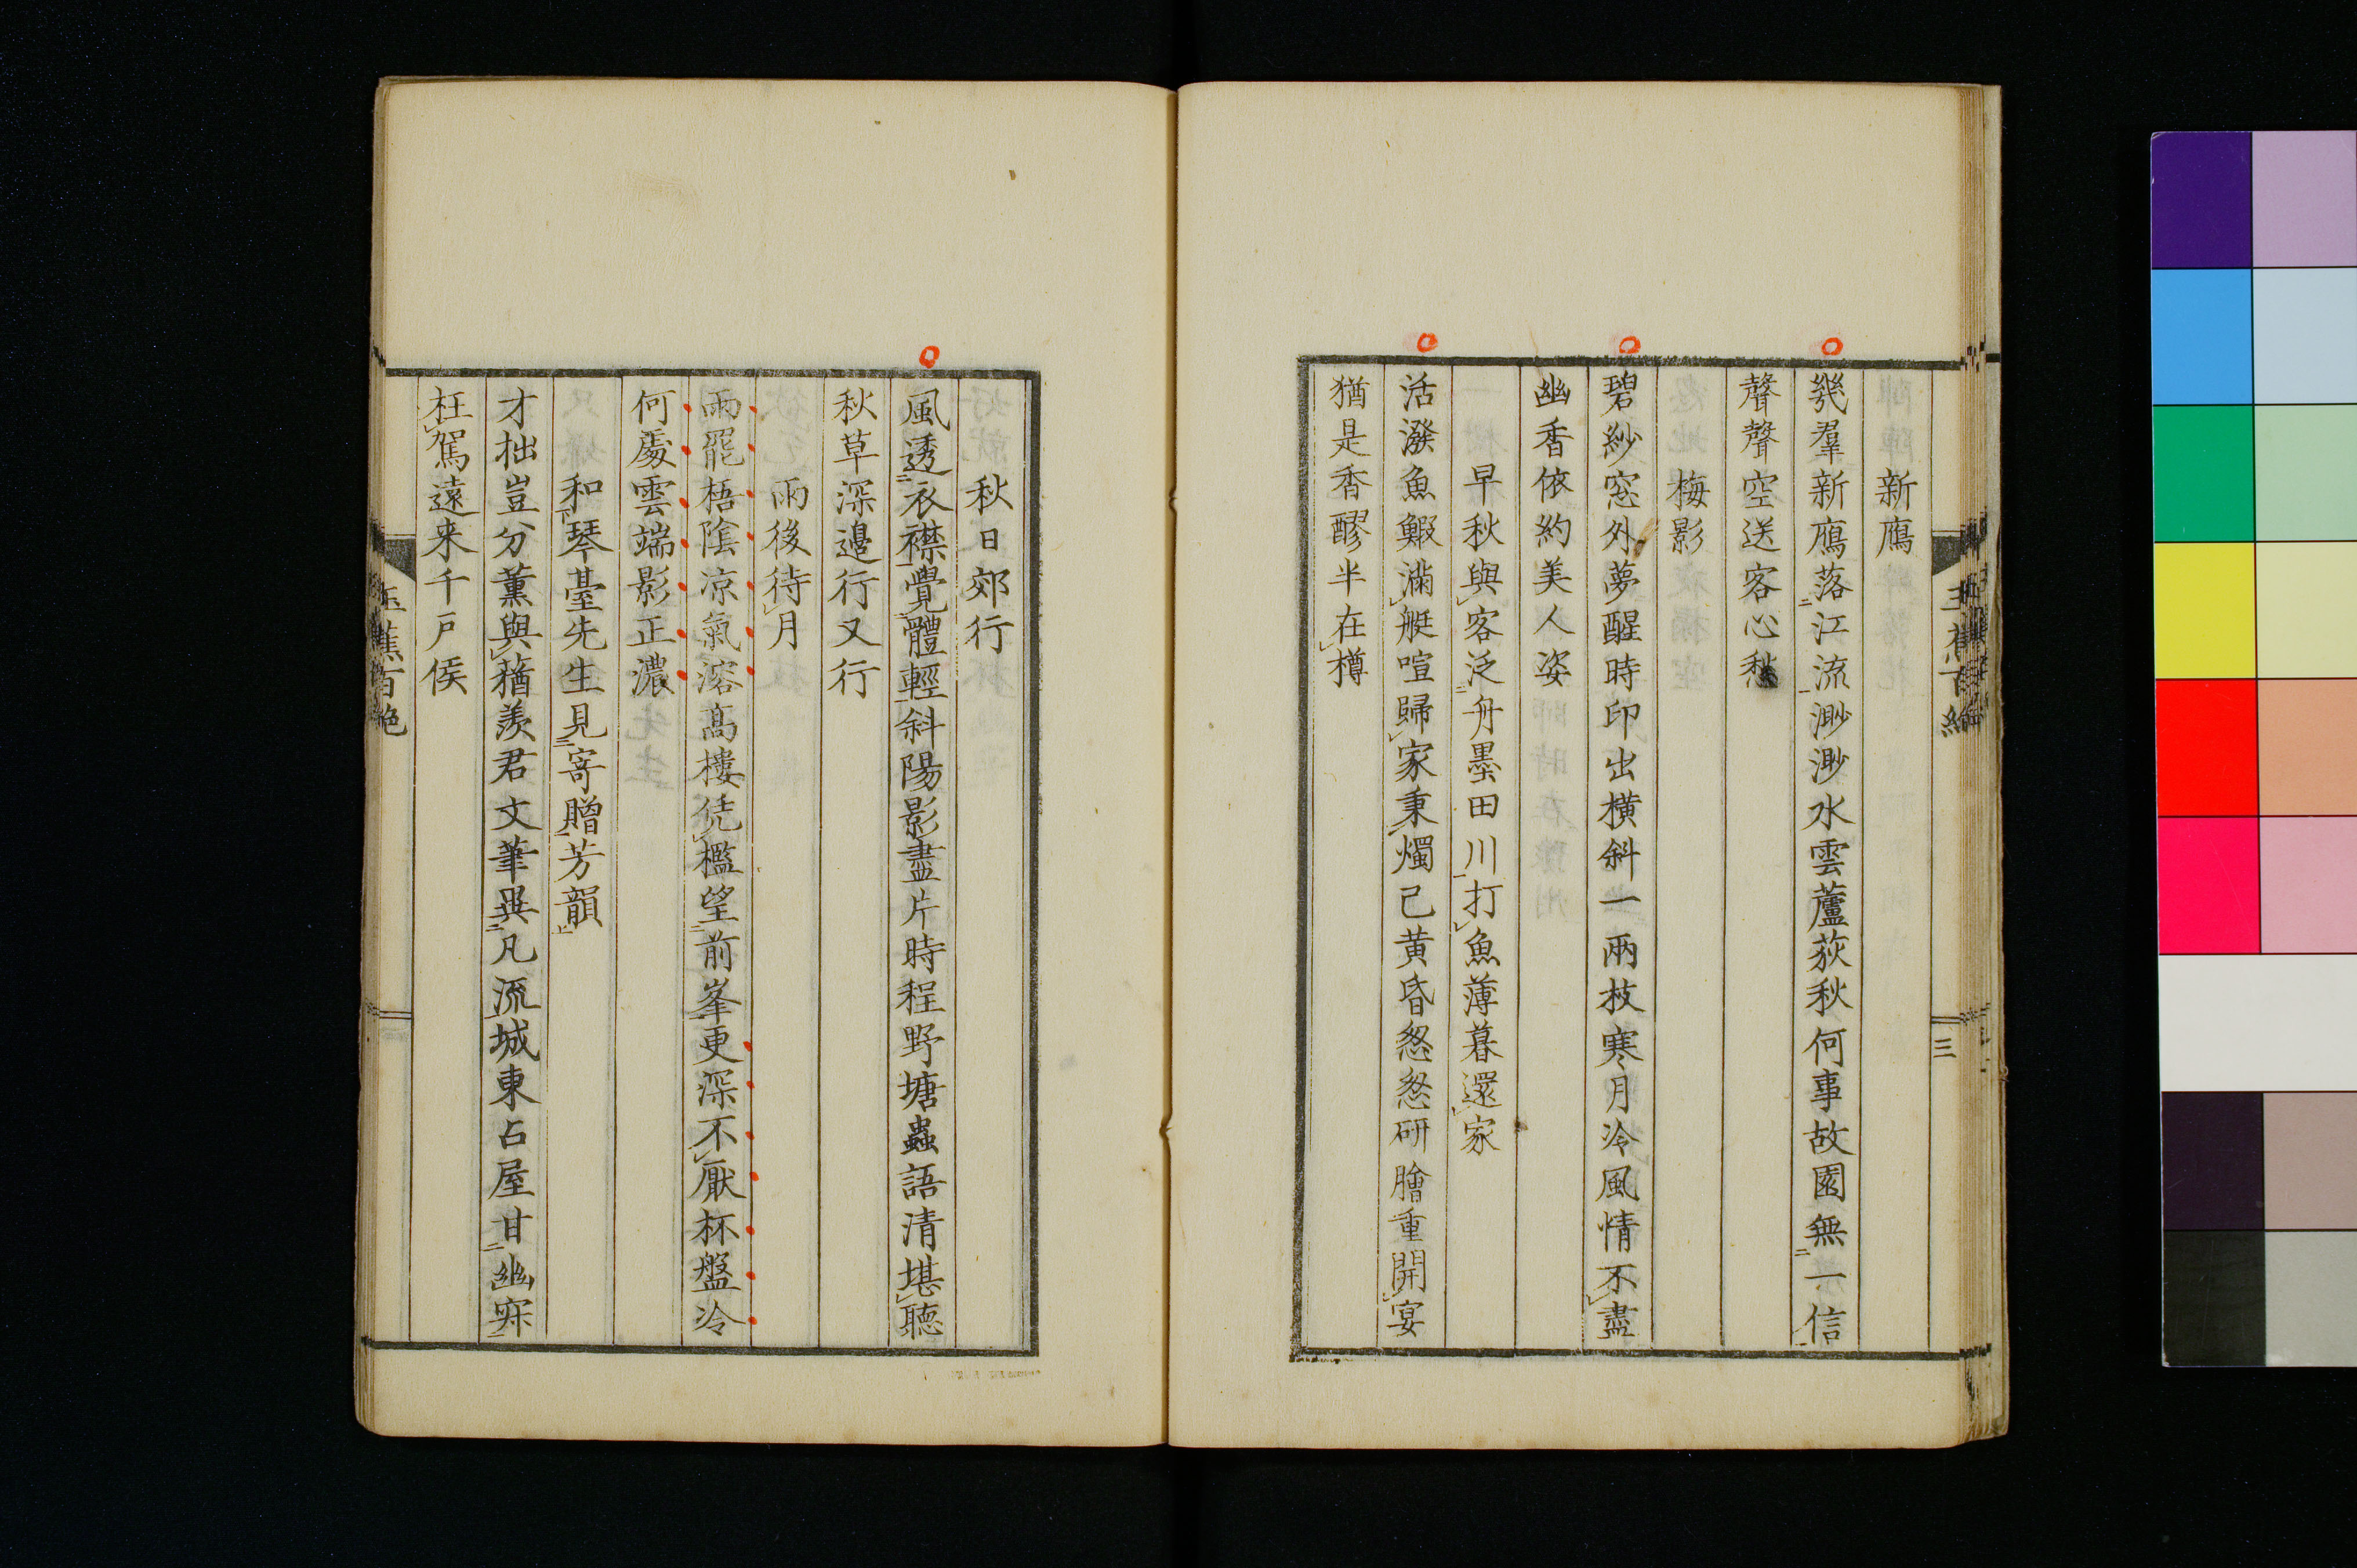 新鴈
幾羣新鴈落江流渺渺水雲蘆荻秋何事故園無一信
聲聲空送客心愁
梅影
碧紗窓外夢醒時印出橫斜一兩枝寒月冷風情不盡
幽香依約美人姿
早秋與客泛舟墨田川打魚薄暮還家
活潑魚鰕滿艇喧歸家秉燭已黃昏怱怱研膾重開宴
猶是香醪半在樽
玉蕉百絶
三
秋日郊行
風透衣襟覺體輕斜陽影盡片時程野塘蟲語清堪聽
秋草深邊行又行
雨後待月
雨罷梧陰涼氣溶高樓凭檻望前峯更深不厭杯盤冷
何處雲端影正濃
和琴臺先生見寄贈芳韻
才拙豈分薰與蕕羨君文筆異凡流城東占屋甘幽寂
枉駕遠来千戸侯
玉蕉百絶